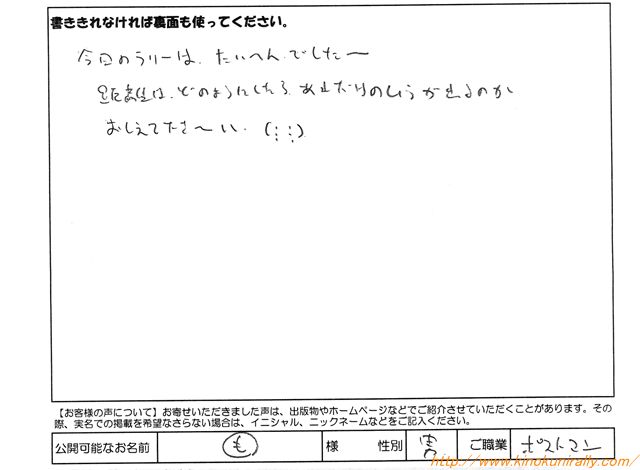 書ききれなければ裏面も使ってください。
今回のラリーは、たいへんでしたー
距離は、どのようにしたら、あれだけのしょうが出るのか
おしえてださ〜い。(;;)
【お客様の声について】お寄せいただきました声は、出版物やホームページなどでご紹介させていただくことがあります。その
際、実名での掲載を希望なさらない場合は、イニシャル、ニックネームなどをご記入ください。
公開可能なお名前 も 様 性別 男 ご職業 ポストマン
http://www.kinokunirally.com